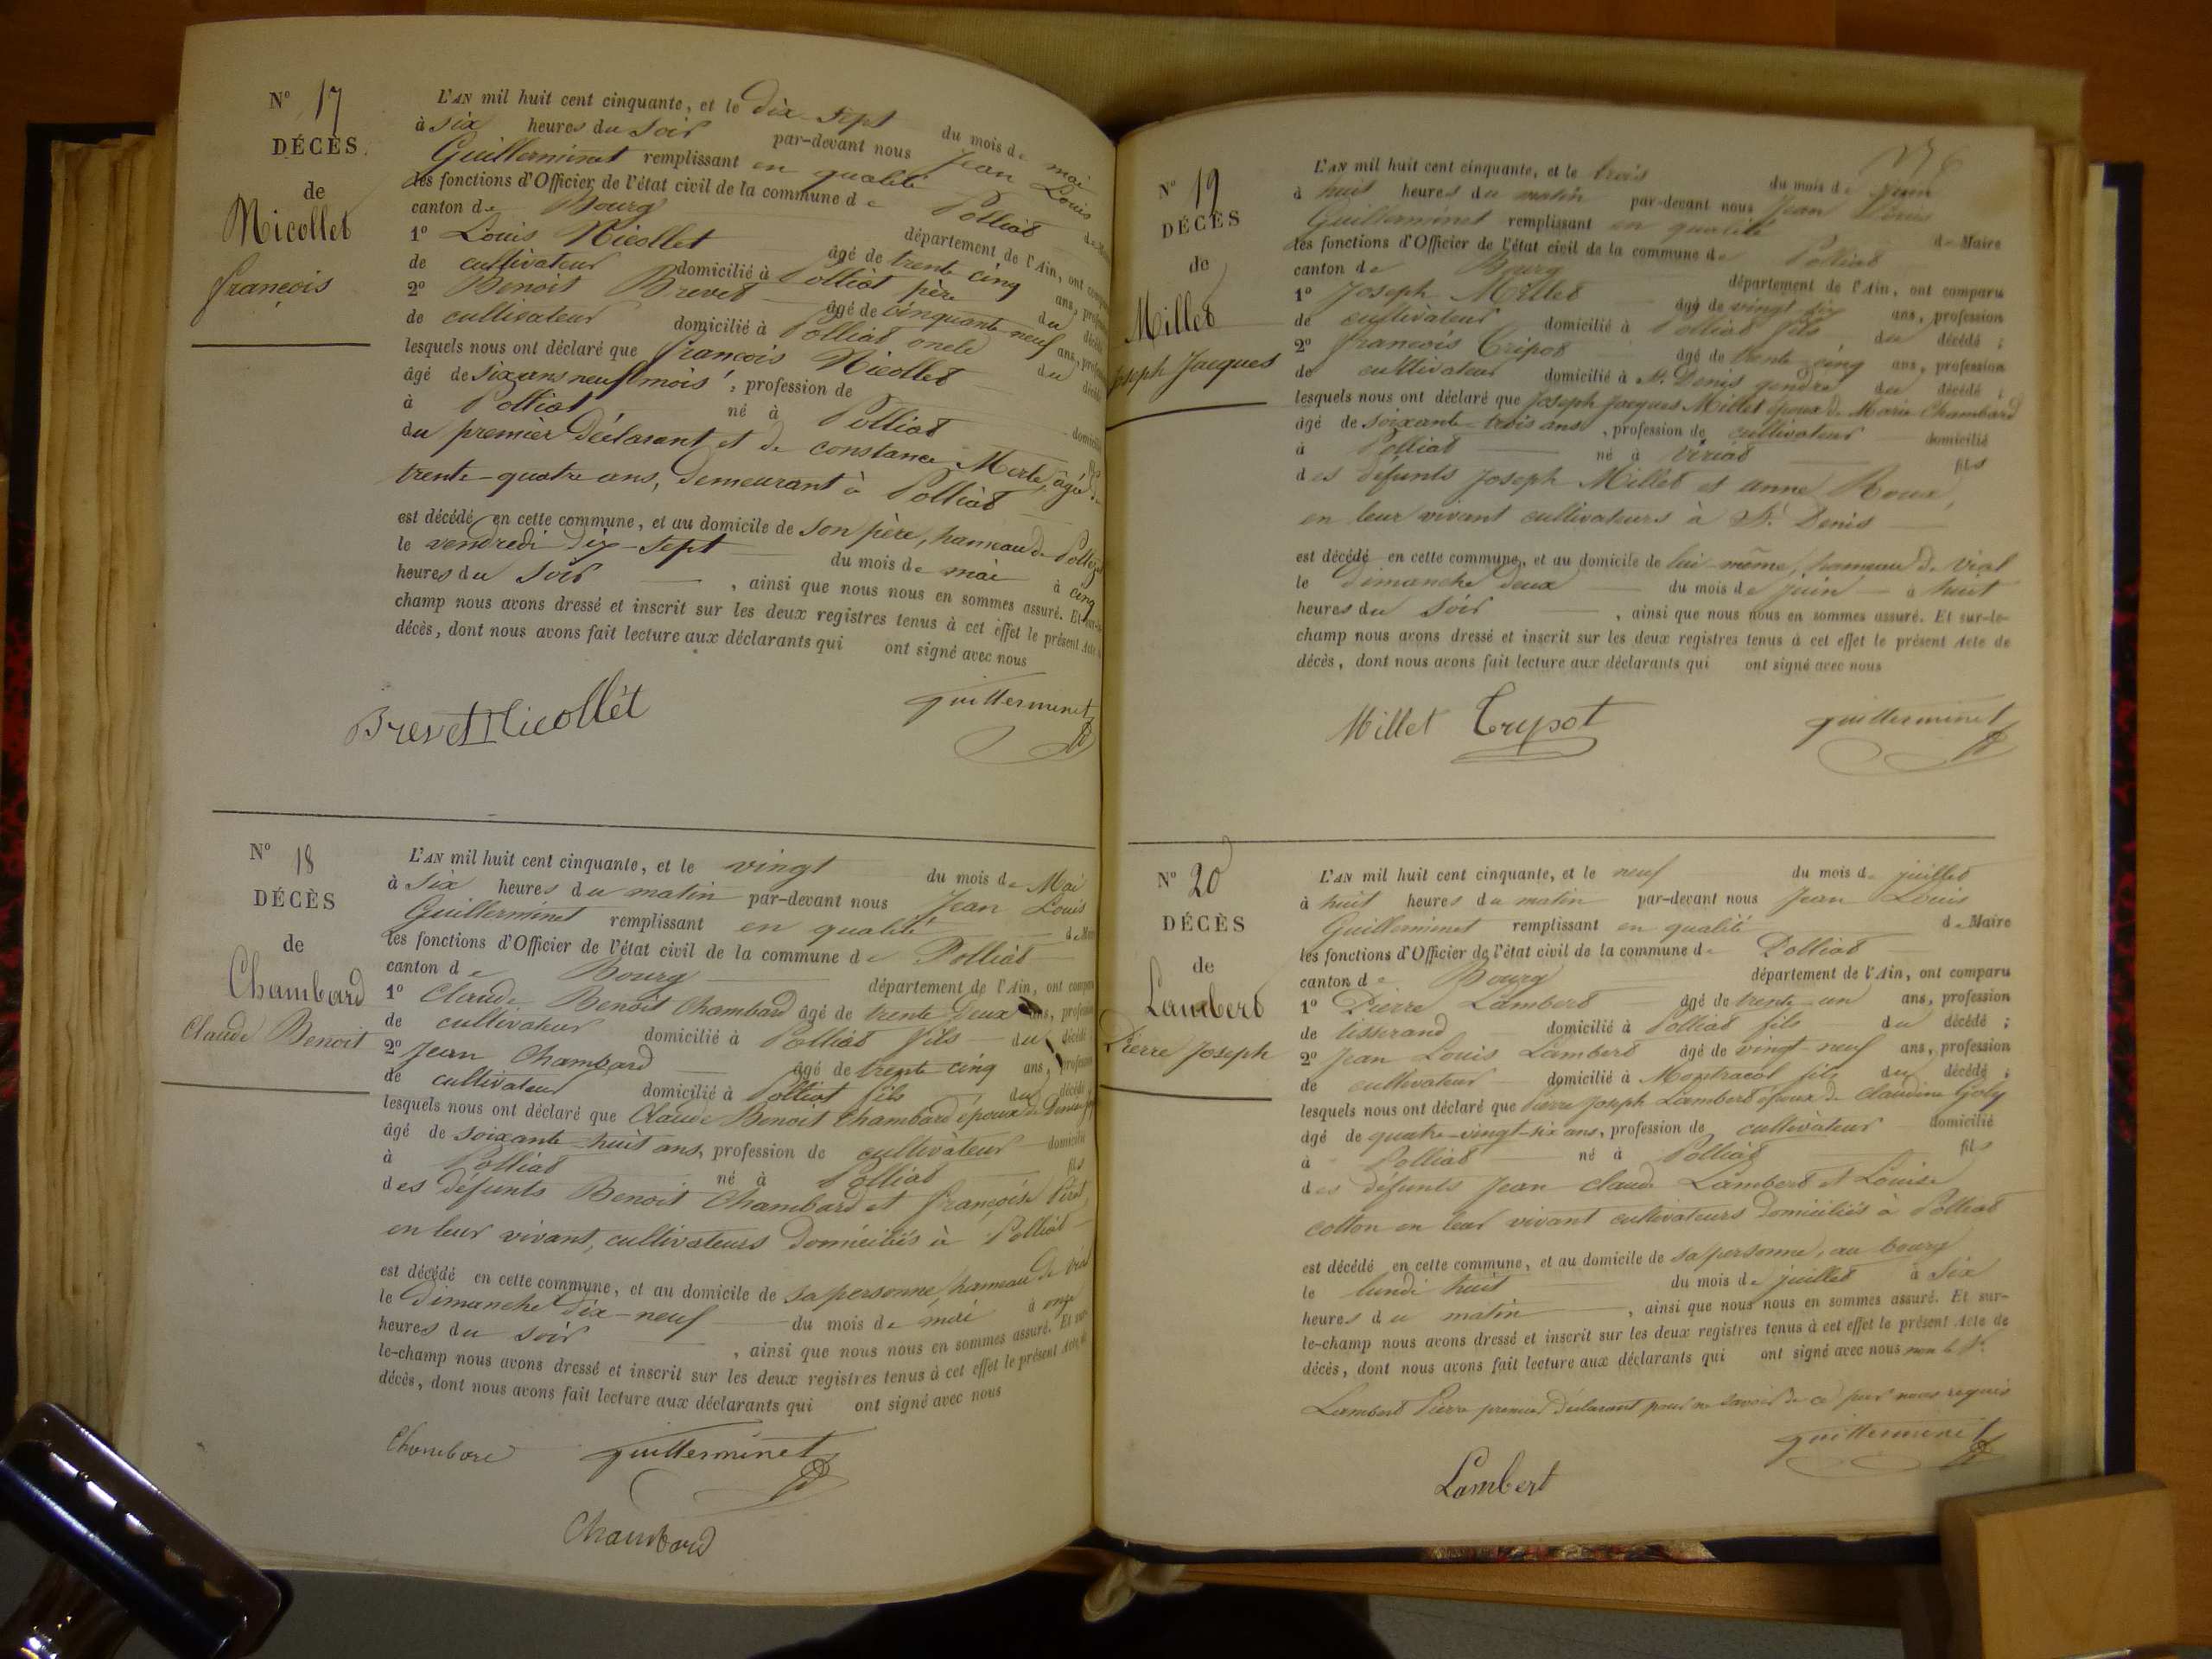 N° 17
DÉCÈS
de
Nicollet
françois
L'AN mil huit cent cinquante, et le dix sept du mois de mai
à six heures du soir par-devant nous Jean Louis
Guillerminet remplissant en qualité de Maire
les fonctions d'Officier de l'état civil de la commune de Polliat
canton de Bourg département de l'Ain, ont comparu
1° Louis Nicollet âgé de trente cinq ans, profession
de cultivateur domicilié à Polliat père du décédé
2° Benoit Brevet âgé de cinquante neuf ans, profession
de cultivateur domicilié à Polliat oncle du décédé
lesquels nous ont déclaré que françois Nicollet
âgé de six ans neuf mois, profession de domicilié
à Polliat né à Polliat fils
du premier déclarant et de constance Merle, âgée de
trente-quatre ans, demeurant à Polliat
est décédé en cette commune, et au domicile de son père, hameau de
le vendredi dix-sept du mois de mai à cinq
heures du soir, ainsi que nous nous en sommes assuré. Et sur-le-
champ nous avons dressé et inscrit sur les deux registres tenus à cet effet le présent Acte de
décès, dont nous avons fait lecture aux déclarants qui ont signé avec nous
Brevet Nicollet guillerminet
N° 18
DÉCÈS
de
Chambard
Claude Benoit
L'AN mil huit cent cinquante, et le vingt du mois de Mai
à six heures du matin par-devant nous Jean Louis
Guillerminet remplissant en qualité de Maire
les fonctions d'Officier de l'état civil de la commune de Polliat
canton de Bourg département de l'Ain, ont comparu
1° Claude Benoit Chambard âgé de trente deux ans, profession
de cultivateur domicilié à Polliat fils du décédé
2° Jean Chambard âgé de trente cinq ans, profession
de cultivateur domicilié à Polliat fils du décédé
lesquels nous ont déclaré que Claude Benoit Chambard époux de Denise
âgé de soixante-huit ans, profession de cultivateur domicilié
à Polliat né à Polliat fils
des défunts Benoit Chambard et françoise
en leur vivant, cultivateurs domiciliés à Polliat
est décédé en cette commune, et au domicile de sa personne, hameau de vial
le dimanche dix-neuf du mois de mai à onze
heures du soir, ainsi que nous nous en sommes assuré. Et sur-
le-champ nous avons dressé et inscrit sur les deux registres tenus à cet effet le présent Acte de
décès, dont nous avons fait lecture aux déclarants qui ont signé avec nous
Chambard guillerminet
Chambard
N° 19
DÉCÈS
de
Millet
Joseph Jacques
L'AN mil huit cent cinquante, et le trois du mois de juin
à huit heures du matin par-devant nous Jean Louis
Guillerminet remplissant en qualité de Maire
les fonctions d'Officier de l'état civil de la commune de Polliat
canton de Bourg département de l'Ain, ont comparu
1° Joseph Millet âgé de vingt six ans, profession
de cultivateur domicilié à Polliat fils du décédé ;
2° françois Tripot âgé de trente-cinq ans, profession
de cultivateur domicilié à St. Denis gendre du décédé ;
lesquels nous ont déclaré que Joseph Jacques Millet époux de Marie Chambard
âgé de soixante-trois ans, profession de cultivateur domicilié
à Polliat né à Viriat fils
des défunts Joseph Millet et anne Roux,
en leur vivant cultivateurs à St. Denis
est décédé en cette commune, et au domicile de lui-même, hameau de vial
le dimanche deux du mois de juin à huit
heures du soir, ainsi que nous nous en sommes assuré. Et sur-le-
champ nous avons dressé et inscrit sur les deux registres tenus à cet effet le présent Acte de
décès, dont nous avons fait lecture aux déclarants qui ont signé avec nous
Millet Trypot guillerminet
N° 20
DÉCÈS
de
Lambert
Pierre Joseph
L'AN mil huit cent cinquante, et le neuf du mois de juillet
à huit heures du matin par-devant nous Jean Louis
Guillerminet remplissant en qualité de Maire
les fonctions d'Officier de l'état civil de la commune de Polliat
canton de Bourg département de l'Ain, ont comparu
1° Pierre Lambert âgé de trente-un ans, profession
de tisserand domicilié à Polliat fils du décédé ;
2° Jean Louis Lambert âgé de vingt-neuf ans, profession
de cultivateur domicilié à Montracol fils du décédé ;
lesquels nous ont déclaré que Pierre Joseph Lambert époux de Claudine Goly
âgé de quatre-vingt-six ans, profession de cultivateur domicilié
à Polliat né à Polliat fils
des défunts Jean Claude Lambert et Louise
cotton en leur vivant cultivateurs domiciliés à Polliat
est décédé en cette commune, et au domicile de sa personne, au bourg
le lundi huit du mois de juillet à six
heures du matin, ainsi que nous nous en sommes assuré. Et sur-
le-champ nous avons dressé et inscrit sur les deux registres tenus à cet effet le présent Acte de
décès, dont nous avons fait lecture aux déclarants qui ont signé avec nous non le Sr.
Lambert Pierre premier déclarant pour ne savoir de ce par nous requis
guillerminet
Lambert